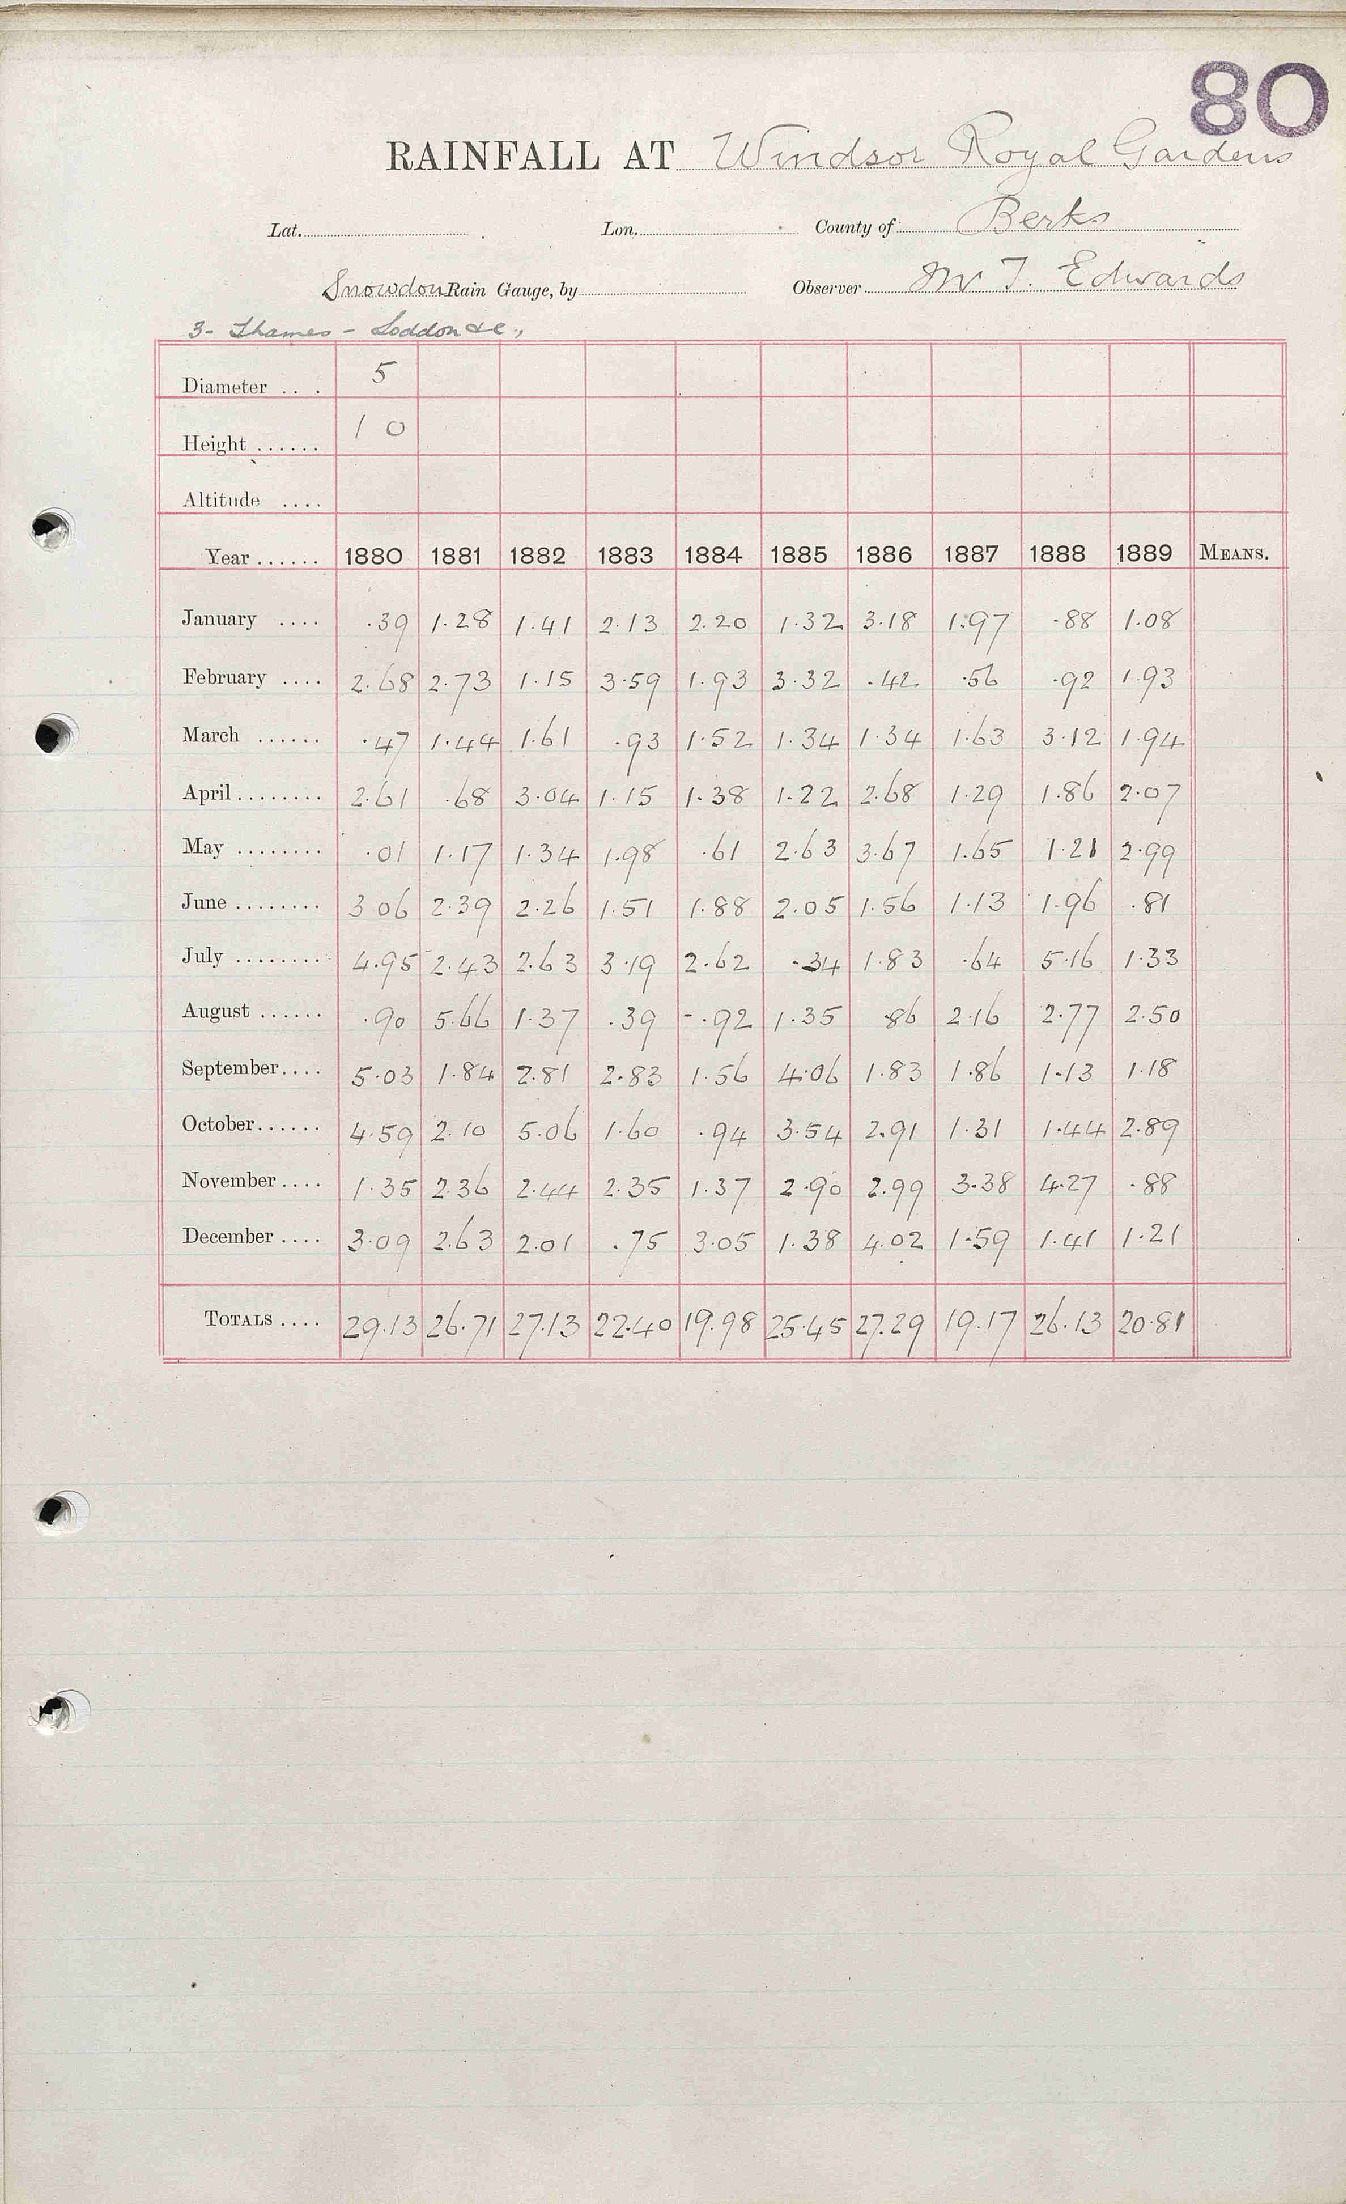 80
RAINFALL AT Windsor Royal Gardens
Lat. Lon. County of Berks
Snowdon Rain Gauge, by Observer Mr T. Edwards
3- Thames - Loddon &c,
Diameter .... 5
Height ...... 1 0
Altitude ....
Year ...... 1880 1881 1882 1883 1884 1885 1886 1887 1888 1889 MEANS.
January .... .39 1.28 1.41 2.13 2.20 1.32 3.18 1.97 .88 1.08
February .... 2.68 2.73 1.15 3.59 1.93 3.32 .42 .56 .92 1.93
March ...... .47 1.44 1.61 .93 1.52 1.34 1.34 1.63 3.12 1.94
April ........ 2.61 .68 3.04 1.15 1.38 1.22 2.68 1.29 1.86 2.07
May ........ .01 1.17 1.34 1.98 .61 2.63 3.67 1.65 1.21 2.99
June ........ 3 06 2.39 2.26 1.51 1.88 2.05 1.56 1.13 1.96 .81
July ........ 4.95 2.43 2.63 3.19 2.62 .34 1.83 .64 5.16 1.33
August ...... .90 5.66 1.37 .39 .92 1.35 .86 2.16 2.77 2.50
September .... 5.03 1.84 2.81 2.83 1.56 4.06 1.83 1.86 1.13 1.18
October ...... 4.59 2.10 5.06 1.60 .94 3.54 2.91 1.31 1.44 2.89
November .... 1.35 2.36 2.44 2.35 1.37 2.90 2.99 3.38 4.27 .88
December .... 3.09 2.63 2.01 .75 3.05 1.38 4.02 1.59 1.41 1.21
TOTALS .... 29.13 26.71 27.13 22.40 19.98 25.45 27.29 19.17 26.13 20.81